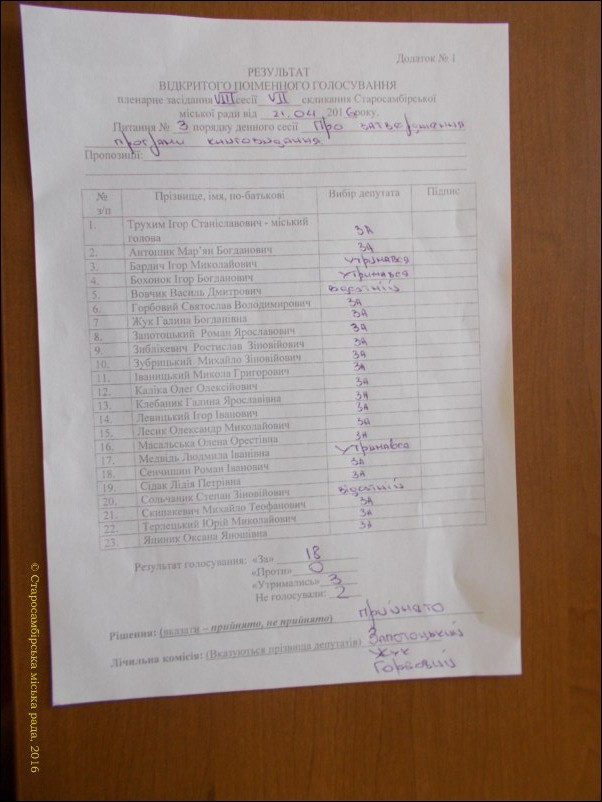 Додаток № 1
РЕЗУЛЬТАТ
ВІДКРИТОГО ПОІМЕННОГО ГОЛОСУВАННЯ
пленарне засідання VIII сесії VII скликання Старосамбірської
міської ради від 21.04 2016 року.
Питання № 3 порядку денного сесії Про затвердження
програми книговидання
Пропозиції:
№ з/п Прізвище, імя, по-батькові Вибір депутата Підпис
1. Трухим Ігор Станіславович - міський
голова ЗА
2. Антошик Мар’ян Богданович ЗА
3. Бардич Ігор Миколайович утримався
4. Бохонок Ігор Богданович утримався
5. Вовчик Василь Дмитрович відсутній
6. Горбовий Святослав Володимирович ЗА
7 Жук Галина Богданівна ЗА
8. Запотоцький Роман Ярославович ЗА
9. Зиблікевич Ростислав Зіновійович ЗА
10. Зубрицький Михайло Зіновійович ЗА
11. Іваницький Микола Григорович ЗА
12. Каліка Олег Олексійович ЗА
13. Клебаник Галина Ярославівна ЗА
14. Левицький Ігор Іванович ЗА
15. Лесик Олександр Миколайович ЗА
16. Масальська Олена Орестівна ЗА
17. Медвідь Людмила Іванівна утримався
18. Сенчишин Роман Іванович ЗА
19. Сідак Лідія Петрівна ЗА
20. Сольчаник Степан Зіновійович відсутній
21. Скипакевич Михайло Теофанович ЗА
22. Терлецький Юрій Миколайович ЗА
23. Яциник Оксана Яношівна ЗА
Результат голосування: «За» 18
«Проти» 0
«Утримались» 3
Не голосували: 2
Рішення: (вказати – прийнято, не прийнято) прийнято
Лічильна комісія: (Вказуються прізвища депутатів) Запотоцький
Жук
Горбовий
© Старосамбірська міська рада, 2016